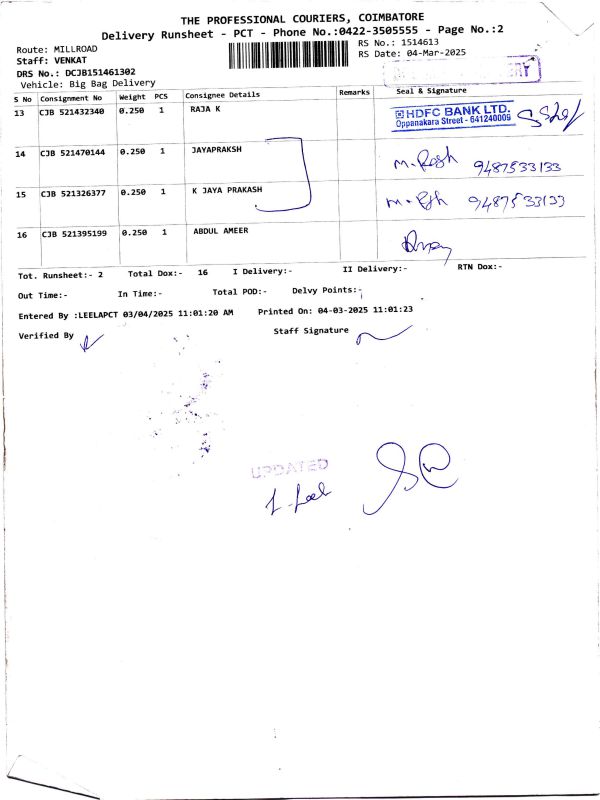 THE PROFESSIONAL COURIERS, COIMBATORE
Delivery Runsheet - PCT - Phone No.:0422-3505555 - Page No.:2
Route: MILLROAD
RS No.: 1514613
Staff: VENKAT
RS Date: 04-Mar-2025
DRS No.: DCJB151461302
Vehicle: Big Bag Delivery
S No Consignment No Weight PCS Consignee Details Remarks Seal & Signature
13 CJB 521432340 0.250 1 RAJA K
HDFC BANK LTD.
Oppanakara Street - 641240009
14 CJB 521470144 0.250 1 JAYAPRAKSH 9487533133
15 CJB 521326377 0.250 1 K JAYA PRAKASH 9487533133
16 CJB 521395199 0.250 1 ABDUL AMEER
Tot. Runsheet:- 2 Total Dox:- 16 I Delivery:- II Delivery:- RTN Dox:-
Out Time:- In Time:- Total POD:- Delvy Points:-
Entered By :LEELAPCT 03/04/2025 11:01:20 AM Printed On: 04-03-2025 11:01:23
Verified By Staff Signature
UPDATED